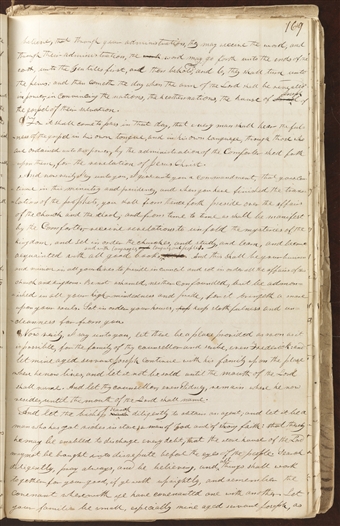 169
believe, that through your administration, they may receive the word, and
through their administration, the word may go forth unto the ends of the
earth, unto the Gentiles first, and then behold, and lo, they shall turn unto
the Jews; and then cometh the day when the arm of the Lord shall be revealed
in power, in convincing the nations, the heathen nations, the house of Joseph, of
the gospel of their salvation.
For it shall come to pass in that day, that every man shall hear the ful-
ness of the gospel in his own tongue, and in his own language, through those who
are ordained unto this power, by the administration of the Comforter, shed forth
upon them, for the revelation of Jesus Christ.
And now verily I say unto you, I give unto you a commandment, that you con-
tinue in this ministry and presidency, and when you have finished the trans-
lation of the prophets, you shall from thenceforth preside over the affairs
of the church and the school, and from time to time, as shall be manifest
by the Comforter, receive revelations to unfold the mysteries of the
kingdom, and set in order the churches, and study and learn, and become
acquainted with all good books, and with languages, tongues and people.
And this shall be your business
and mission in all your lives to preside in council and set in order all the affairs of this
church and kingdom. Be not ashamed, neither confounded, but be admon-
ished in all your high mindedness and pride, for it bringeth a snare
upon your souls. Set in order your houses, keep slothfulness and un-
cleanness far from you.
Now verily I say unto you, let there be a place provided as soon as it
is possible, for the family of thy counsellor and scribe, even Frederick: And
let mine aged servant Joseph continue with his family upon the place
where he now lives, and let it not be sold until the mouth of the Lord
shall name. And let thy counsellor, even Sidney, remain where he now
resides, until the mouth of the Lord shall name.
And let the bishop search diligently to obtain an agent, and let it be a
man who has got riches in store, a man of God and of strong faith; that thereby
he may be enabled to discharge every debt, that the store house of the Lord
may not be brought into disrepute before the eyes of the people. Search
diligently, pray always, and be believing, and all things shall work
together for your good, if ye walk uprightly, and remember the
covenant wherewith ye have covenanted one with another. Let
your families be small, especially mine aged servant Joseph, as